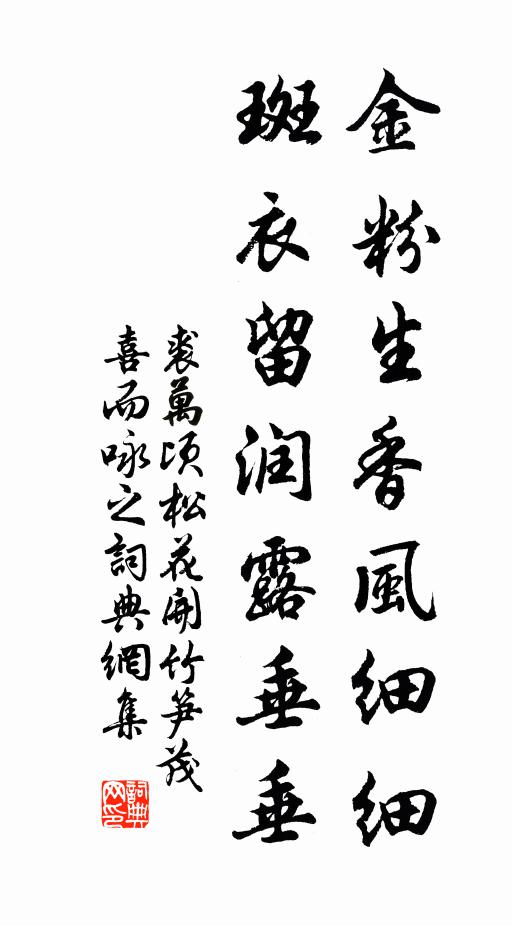 金粉生香風細細
斑衣留润露垂垂
裘萬頃松花開竹笋茂
喜而咏之詞典網集
詞典网印